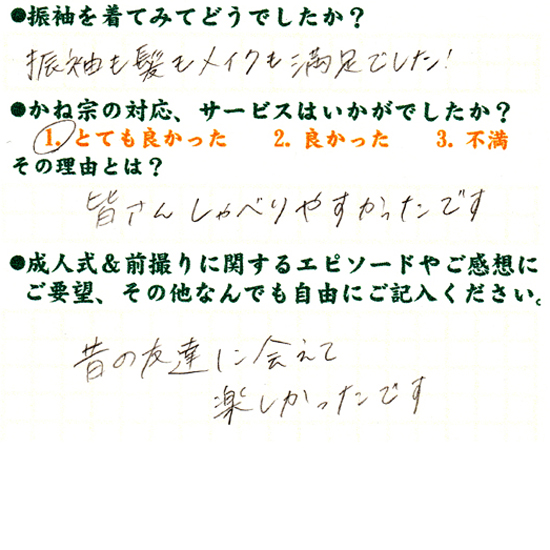 ●振袖を着てみてどうでしたか？
振袖も髪もメイクも満足でした!
●かね宗の対応、サービスはいかがでしたか？
1. とても良かった 2. 良かった 3. 不満
その理由とは？
皆さんしゃべりやすかったです
●成人式＆前撮りに関するエピソードやご感想に
ご要望、その他なんでも自由にご記入ください。
昔の友達に会えて
楽しかったです